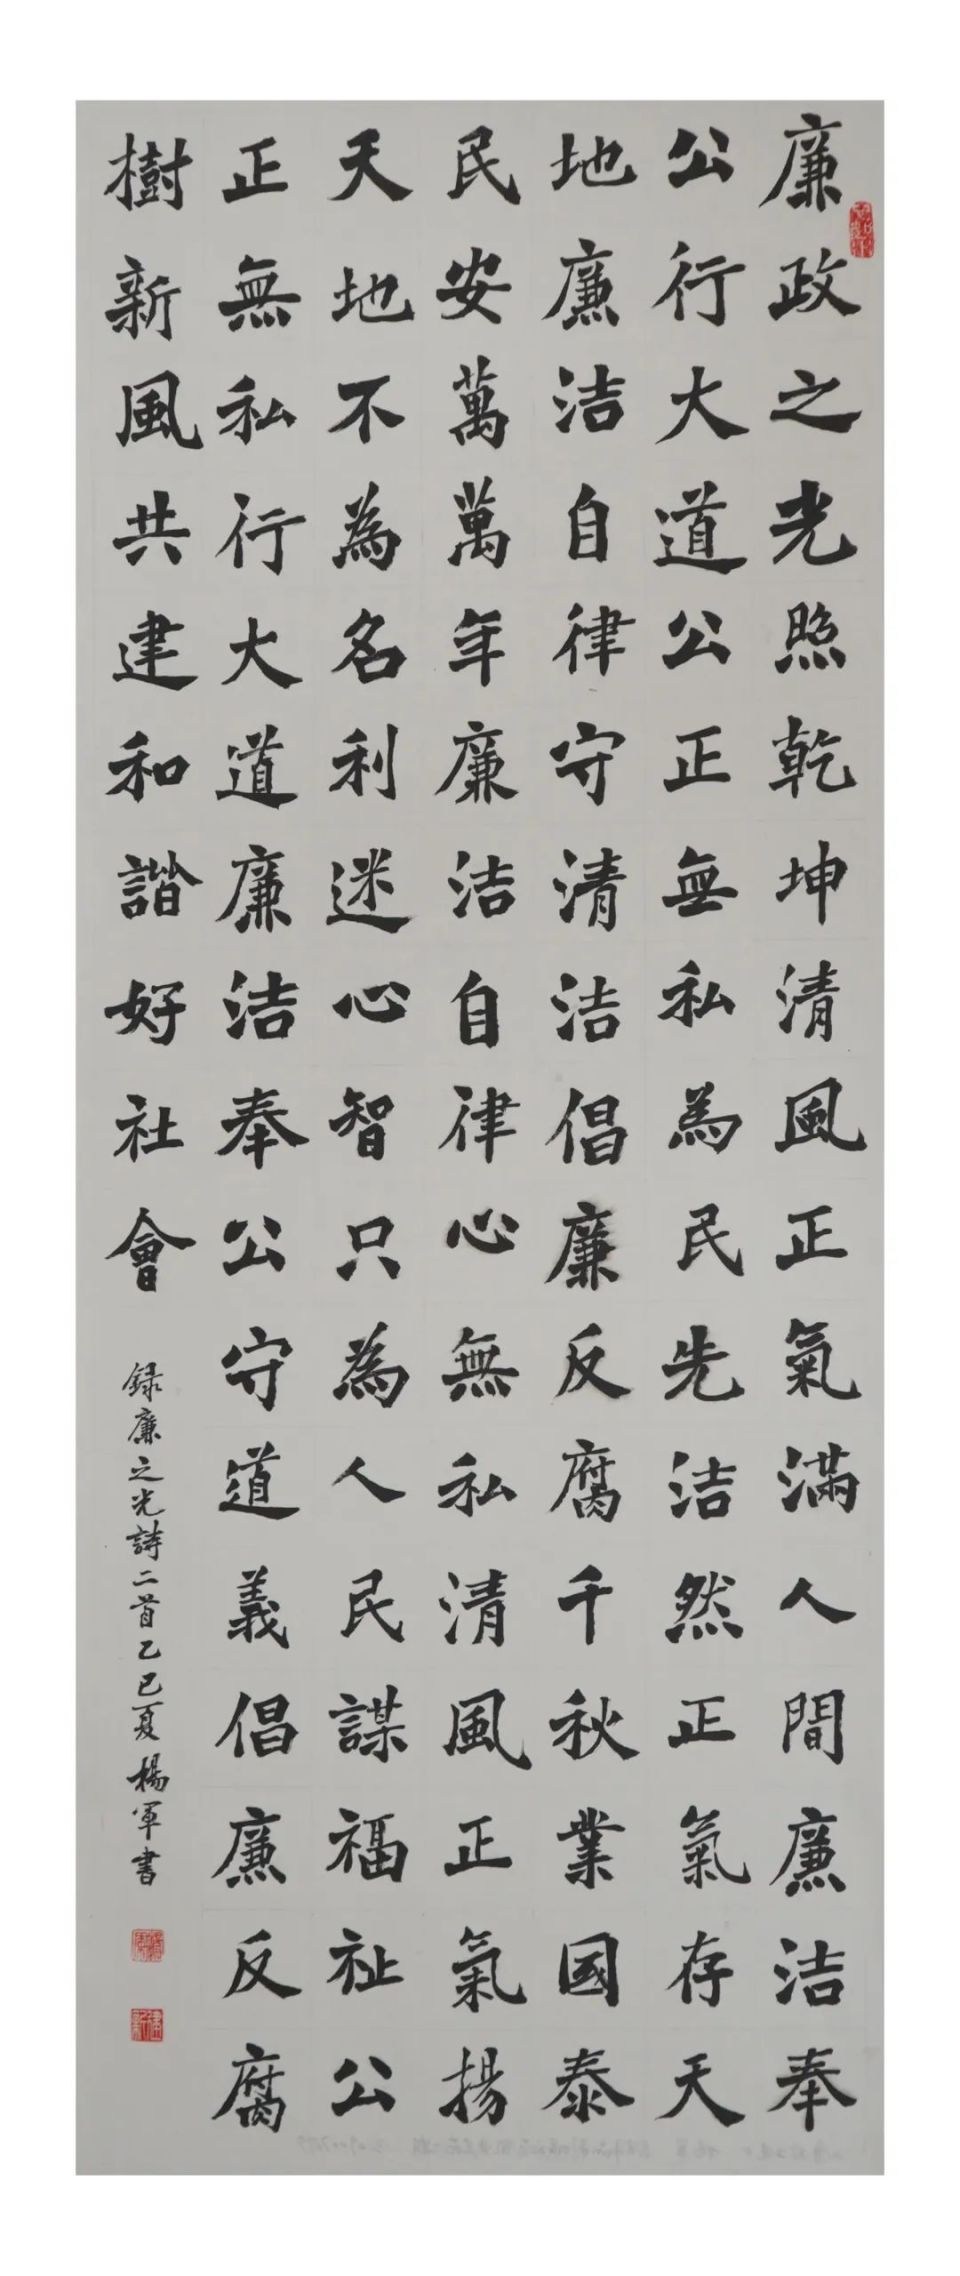 廉政之光照乾坤清風正氣滿人間廉洁奉
公行大道公正無私為民先洁然正氣存天
地廉洁自律守清洁倡廉反腐千秋業國泰
民安萬萬年廉洁自律心無私清風正氣揚
天地不為名利迷心智只為人民謀福祉公
正無私行大道廉洁奉公守道義倡廉反腐
樹新風共建和諧好社會
録廉之光詩二首乙巳夏楊軍書